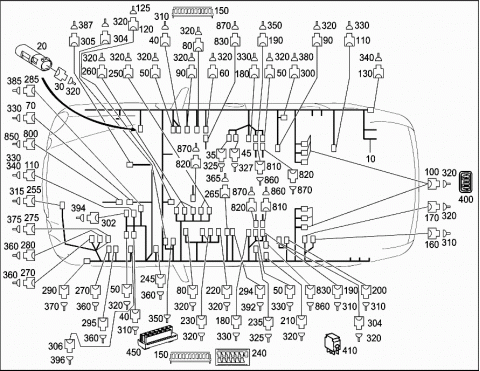 125
387 320 320 310 150 870 350 320 330
305 304 120 40 320 80 830 190 90 110
20
320 320 320 320 320 330 320 380 340
260 250 50 90 60 180 50 300 130
30 320
385 285
330 70
850 800
330
340 110
315 255
375 275
360 280
360 270
394
302
870
820
35 45 810
325 327 860
820
870
365
265 870 860
820 810
10
100 320
400
170 320
160 310
290 270 50 245 80 220 294 50 830 190 200
370 360 320 360 320 320 392 330 860 310 310
40
295 310 350 230 180 235 210 304
360 320 330 325 320 320
306 450 150 240 410
396